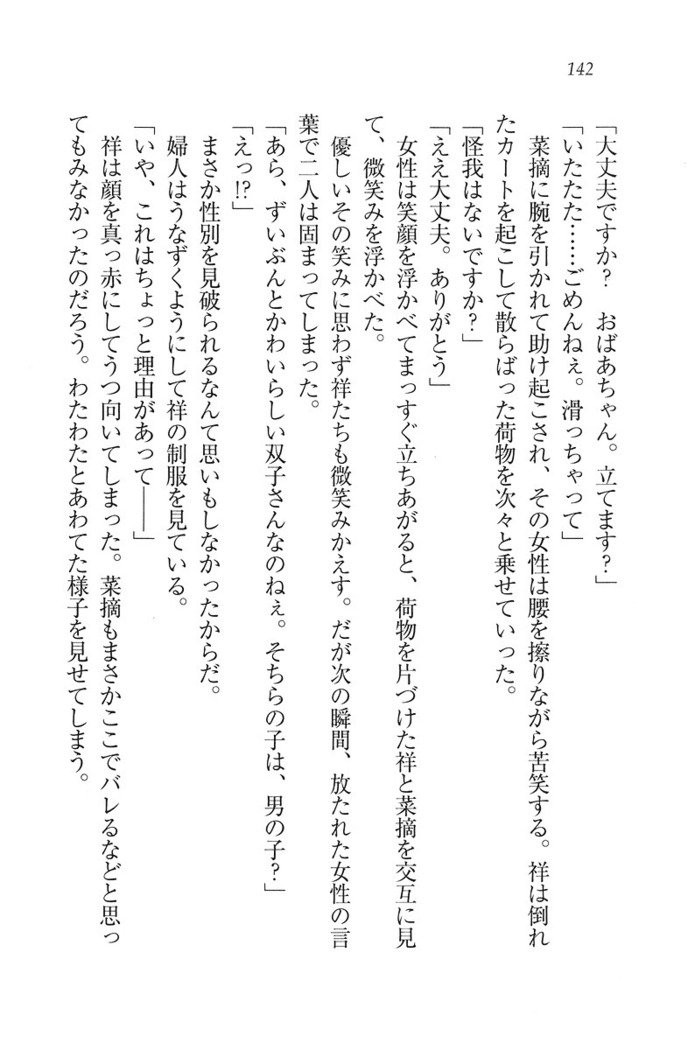 142
「大丈夫ですか？　おばあちゃん。立てます？」
「いたたた……ごめんねぇ。滑っちゃって」
　菜摘に腕を引かれて助け起こされ、その女性は腰を擦りながら苦笑する。祥は倒れ
たカートを起こして散らばった荷物を次々と乗せていった。
「怪我はないですか？」
「ええ大丈夫。ありがとう」
　女性は笑顔を浮かべてまっすぐ立ちあがると、荷物を片づけた祥と菜摘を交互に見
て、微笑みを浮かべた。
　優しいその笑みに思わず祥たちも微笑みかえす。だが次の瞬間、放たれた女性の言
葉で二人は固まってしまった。
「あら、ずいぶんとかわいらしい双子さんなのねぇ。そちらの子は、男の子？」
「えっ!?」
　まさか性別を見破られるなんて思いもしなかったからだ。
　婦人はうなずくようにして祥の制服を見ている。
「いや、これはちょっと理由があって――」
　祥は顔を真っ赤にしてうつ向いてしまった。菜摘もまさかここでバレるなどと思っ
てもみなかったのだろう。わたわたとあわてた様子を見せてしまう。